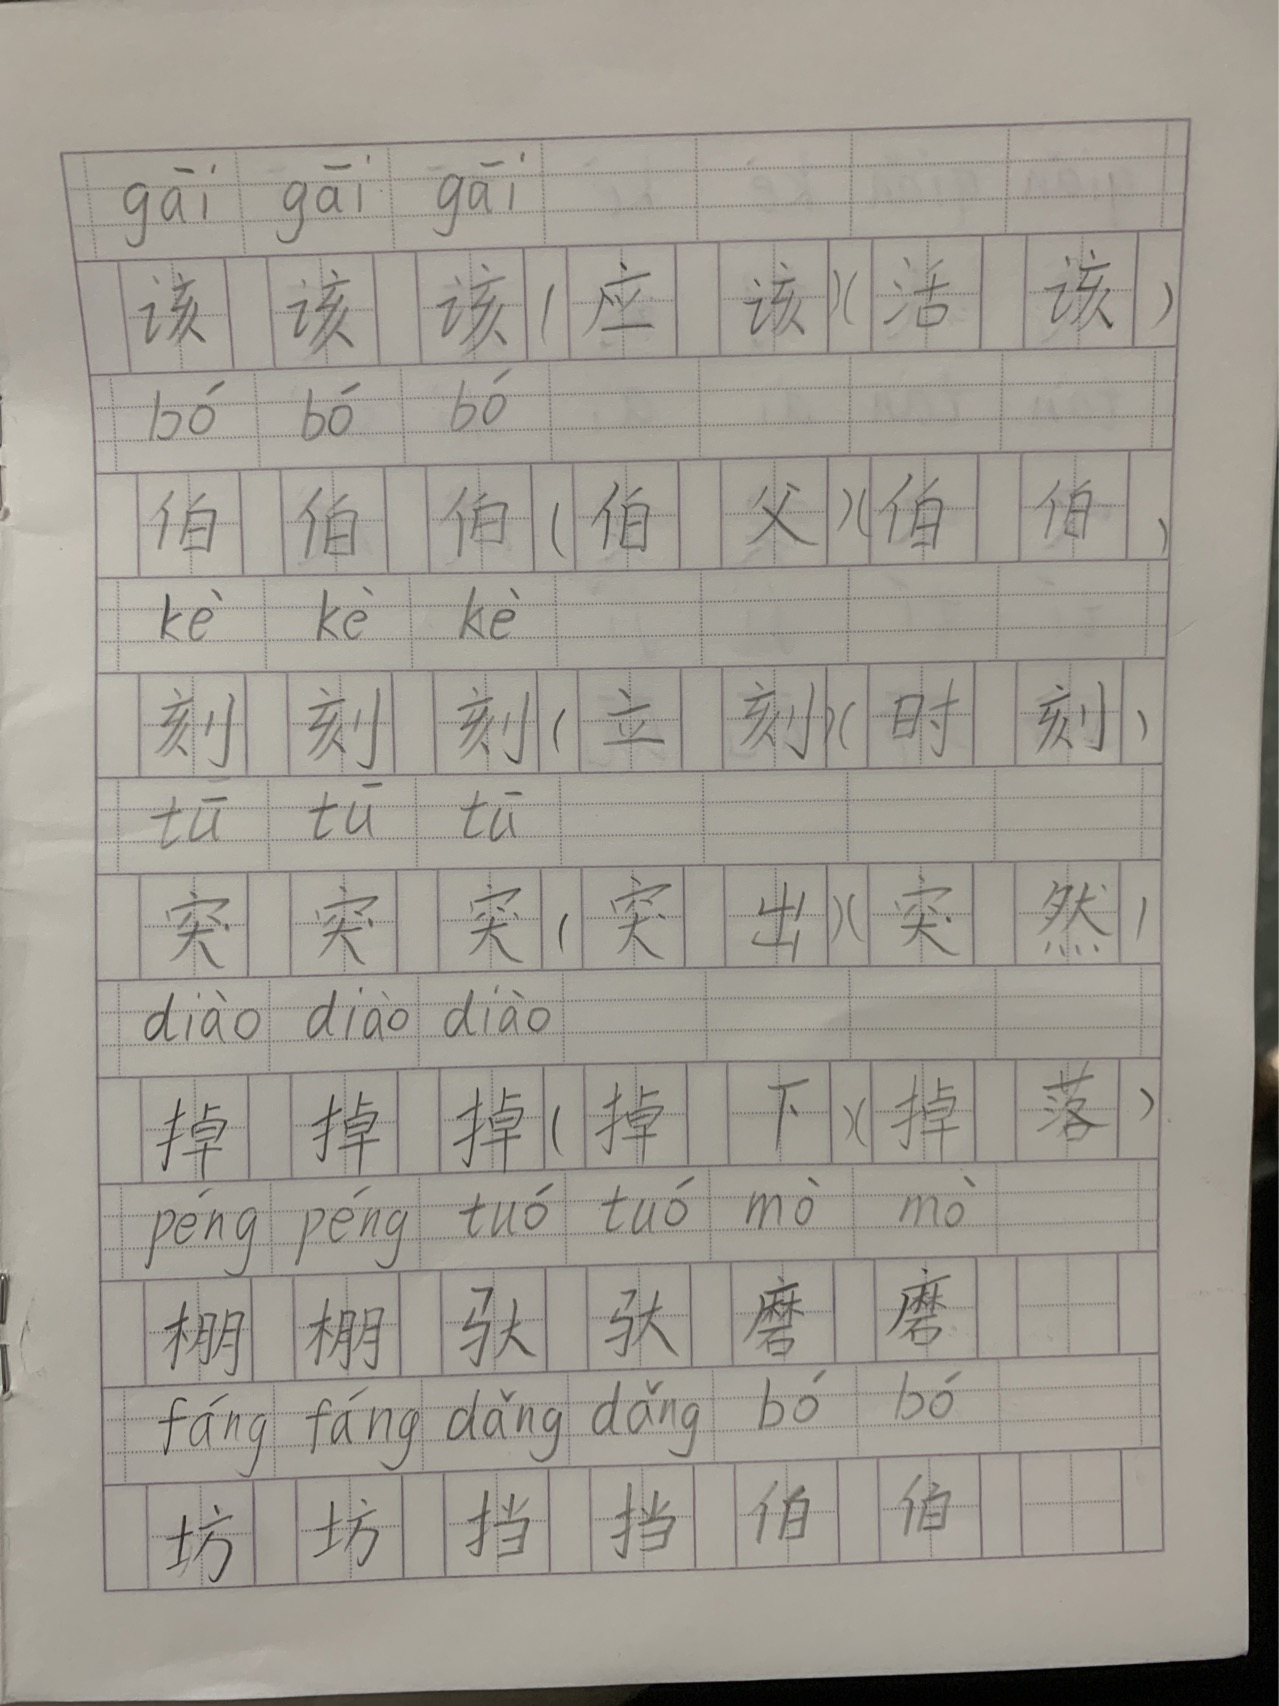 gāi gāi gāi
该 该 该 ( 应 该 ) ( 活 该 )
bó bó bó
伯 伯 伯 ( 伯 父 ) ( 伯 伯 )
kè kè kè
刻 刻 刻 ( 立 刻 ) ( 时 刻 )
tū tū tū
突 突 突 ( 突 出 ) ( 突 然 )
diào diào diào
掉 掉 掉 ( 掉 下 ) ( 掉 落 )
péng péng tuó tuó mò mò
棚 棚 驮 驮 磨 磨
fáng fáng dǎng dǎng bó bó
坊 坊 挡 挡 伯 伯